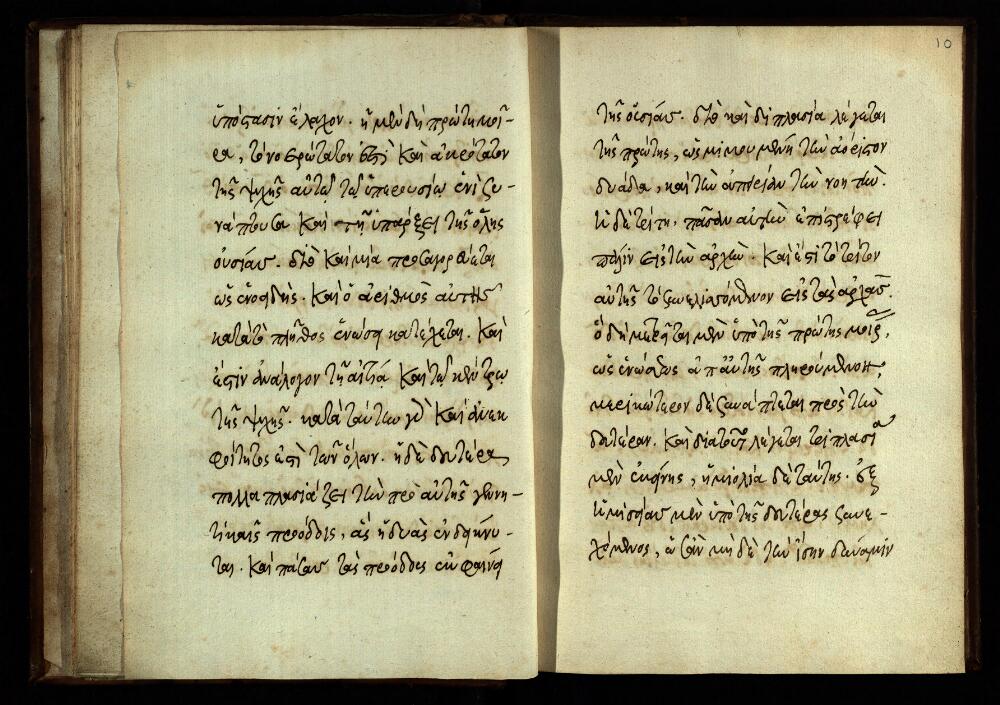 ὑπόστασιν ἔλαχον. ἡ μὲν δὴ πρώτη μοῖ-
ρα, τὸ νοερώτατον ἐστὶ καὶ ἀκρότατον
τῆς ψυχῆς αὐτῷ τῷ ὑπερουσίῳ ἑνὶ ξυ-
νάπτουσα καὶ τῇ ὑπάρξει τῆς ὅλης
οὐσίας. διὸ καὶ μία προσαγορεύεται
ὡς ἑνοειδής. καὶ ὁ ἀριθμὸς αὐτῆς
κατὰ τὸ πλῆθος ἑνώσει κατέχεται. καὶ
ἔστιν ἀνάλογον τῇ αἰτίᾳ καὶ τῷ κέντρῳ
τῆς ψυχῆς. κατὰ ταύτην γὰρ καὶ ἀνεκ
φοίτητος ἐστὶ τῶν ὅλων. ἡ δὲ δευτέρα
πολλαπλασιάζει τὴν πρὸ αὐτῆς γεννη-
τικαῖς προόδοις, ἃς ἡ δυὰς ἐνδείκνυ-
ται. καὶ πάσας τὰς προόδους ἐκφαίνει
10
τῆς οὐσίας. διὸ καὶ διπλασία λέγεται
τῆς πρώτης, ὡς μιμουμένη τὴν ἀόριστον
δυάδα, καὶ τὴν ἀπειρίαν τὴν νοητήν.
ἡ δὲ τρίτη, πᾶσαν αὐτὴν ἐπιστρέφει
πάλιν εἰς τὴν ἀρχήν. καὶ ἔστι τὸ τρίτον
αὐτῆς τὸ ξυνελισσόμενον εἰς τὰς ἀρχάς.
ὃ δὴ μετρεῖται μὲν ὑπὸ τῆς πρώτης μοίρας,
ὡς ἑνώσεως ἀπ' αὐτῆς πληρούμενον,
μερικώτερον δὲ ξυνάπτεται πρὸς τὴν
δευτέραν. καὶ διὰ τοῦτο λέγεται τριπλασία
μὲν ἐκείνης, ἡμιολία δὲ ταύτης. ἐξ
ἡμισείας μὲν ὑπὸ τῆς δευτέρας ξυνε-
χόμενος, ἅτε ἂν μὴ δὲ τὴν ἴσην δύναμιν